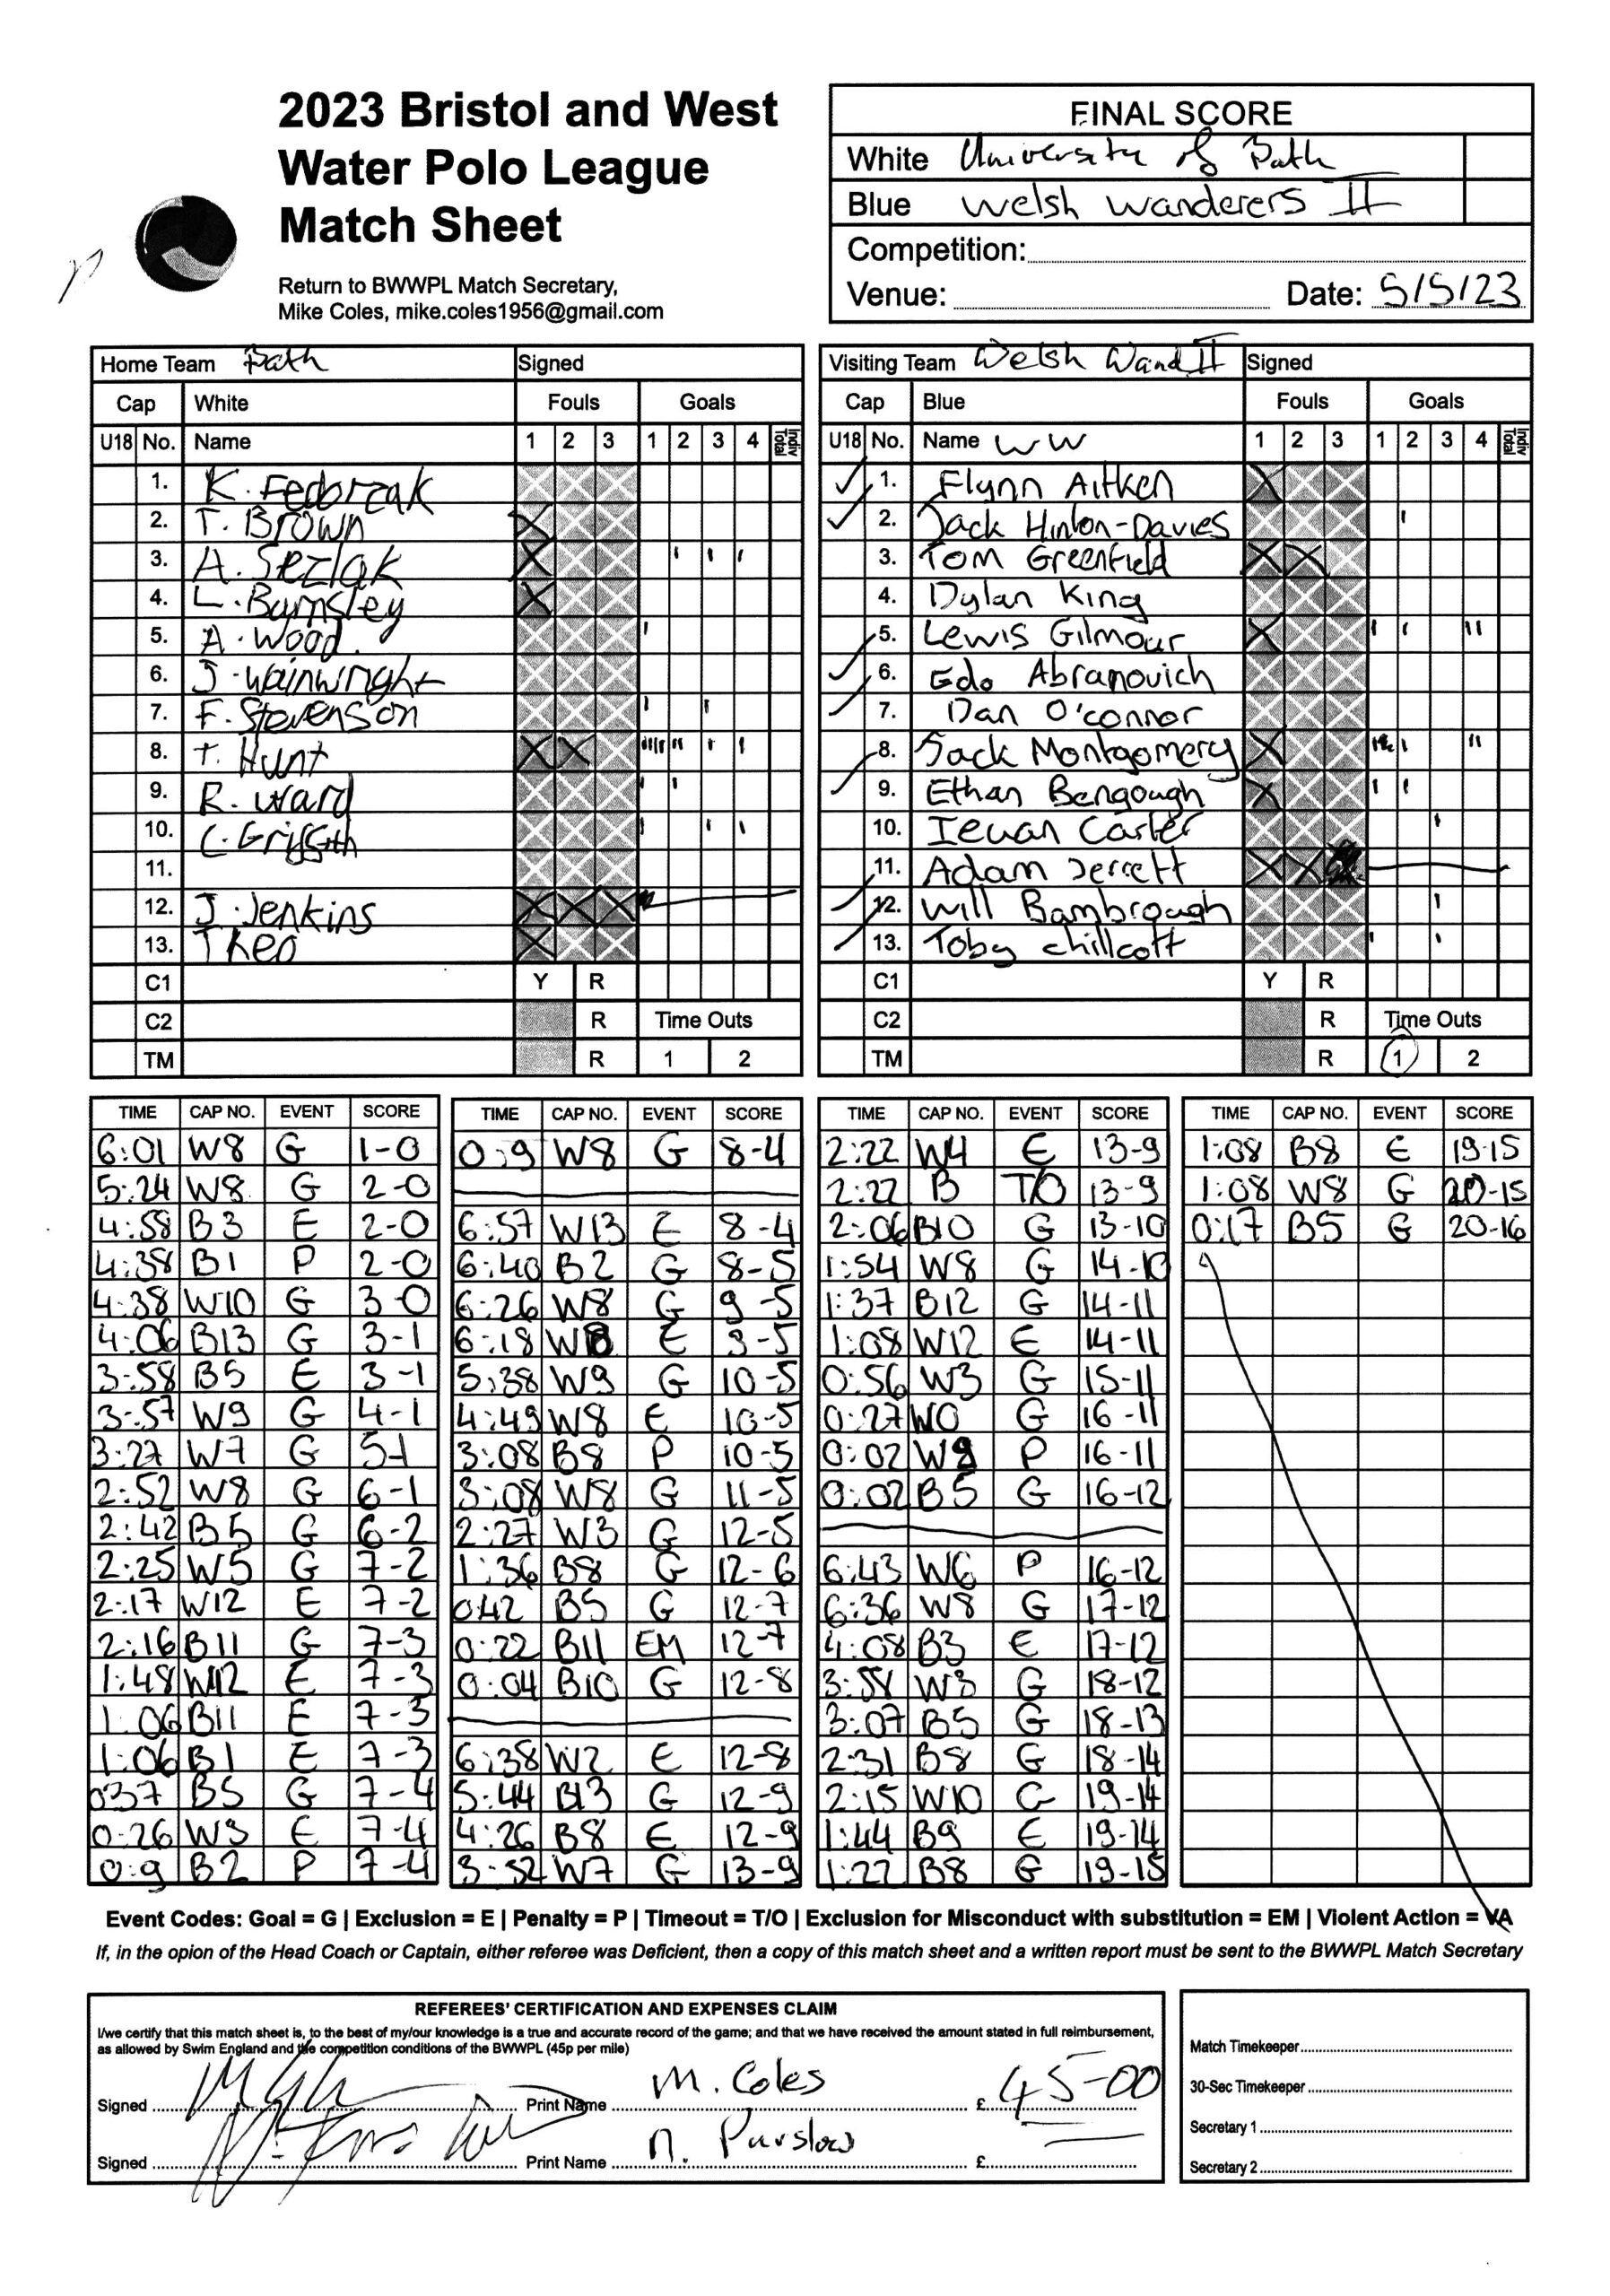 2023 Bristol and West
Water Polo League
Match Sheet
Return to BWWPL Match Secretary,
Mike Coles, mike.coles1956@gmail.com
FINAL SCORE
White University of Bath
Blue Welsh Wanderers II
Competition:
Venue: Date: 5/5/23
Home Team Bath Signed
Cap White Fouls Goals
U18 No. Name 1 2 3 1 2 3 4 Indiv Total
1. K. Fedorzak
2. T. Brown X
3. A. Sezlak X
4. L. Barnsley X
5. A. Wood
6. J. Wainwright
7. F. Stevenson
8. T. Hunt X X
9. R. Ward
10. C. Griffith
11.
12. J. Jenkins X X X
13. Theo X
C1 Y R
C2 R Time Outs
TM R 1 2
Visiting Team Welsh Wand II Signed
Cap Blue Fouls Goals
U18 No. Name WW 1 2 3 1 2 3 4 Indiv Total
1. Flynn Aitken X
2. Jack Hinton-Davies
3. Tom Greenfield X X
4. Dylan King
5. Lewis Gilmour X
6. Edo Abramovich
7. Dan O'connor
8. Jack Montgomery X
9. Ethan Bengough X
10. Ieuan Carter
11. Adam Jerrett X X
12. Will Bambrough
13. Toby Chillcott
C1 Y R
C2 R Time Outs
TM R 1 2
TIME CAP NO. EVENT SCORE
6:01 W8 G 1-0
5:24 W8 G 2-0
4:58 B3 E 2-0
4:38 B1 P 2-0
4:38 W10 G 3-0
4:06 B13 G 3-1
3:58 B5 E 3-1
3:57 W9 G 4-1
3:27 W7 G 5-1
2:52 W8 G 6-1
2:42 B5 G 6-2
2:25 W5 G 7-2
2:17 W12 E 7-2
2:16 B11 G 7-3
1:48 W12 E 7-3
1:06 B11 E 7-3
1:06 B1 E 7-3
037 B5 G 7-4
0:26 W3 E 7-4
0:9 B2 P 7-4
TIME CAP NO. EVENT SCORE
0:9 W8 G 8-4
6:57 W13 E 8-4
6:40 B2 G 8-5
6:26 W8 G 9-5
6:18 W8 E 9-5
5:38 W9 G 10-5
4:49 W8 E 10-5
3:08 B8 P 10-5
3:08 W8 G 11-5
2:27 W3 G 12-5
1:36 B8 G 12-6
042 B5 G 12-7
0:22 B11 EM 12-7
0:04 B10 G 12-8
6:38 W2 E 12-8
5:44 B13 G 12-9
4:26 B8 E 12-9
3:52 W7 G 13-9
TIME CAP NO. EVENT SCORE
2:22 W4 E 13-9
2:22 B T/O 13-9
2:06 B10 G 13-10
1:54 W8 G 14-10
1:37 B12 G 14-11
1:08 W12 E 14-11
0:56 W3 G 15-11
0:27 W0 G 16-11
0:02 P 16-11
0:02 B5 G 16-12
6:43 W6 P 16-12
6:36 W8 G 17-12
4:08 B3 E 17-12
3:58 W3 G 18-12
3:07 B5 G 18-13
2:31 B8 G 18-14
2:15 W10 G 19-14
1:44 B9 E 19-14
1:22 B8 G 19-15
TIME CAP NO. EVENT SCORE
1:08 B8 E 19-15
1:08 W8 G 20-15
0:17 B5 G 20-16
Event Codes: Goal = G | Exclusion = E | Penalty = P | Timeout = T/O | Exclusion for Misconduct with substitution = EM | Violent Action = VA
If, in the opion of the Head Coach or Captain, either referee was Deficient, then a copy of this match sheet and a written report must be sent to the BWWPL Match Secretary
REFEREES' CERTIFICATION AND EXPENSES CLAIM
I/we certify that this match sheet is, to the best of my/our knowledge is a true and accurate record of the game; and that we have received the amount stated in full reimbursement,
as allowed by Swim England and the competition conditions of the BWWPL (45p per mile)
Signed Print Name M. Coles £ 45-00
Signed Print Name N. Purslow £
Match Timekeeper
30-Sec Timekeeper
Secretary 1
Secretary 2